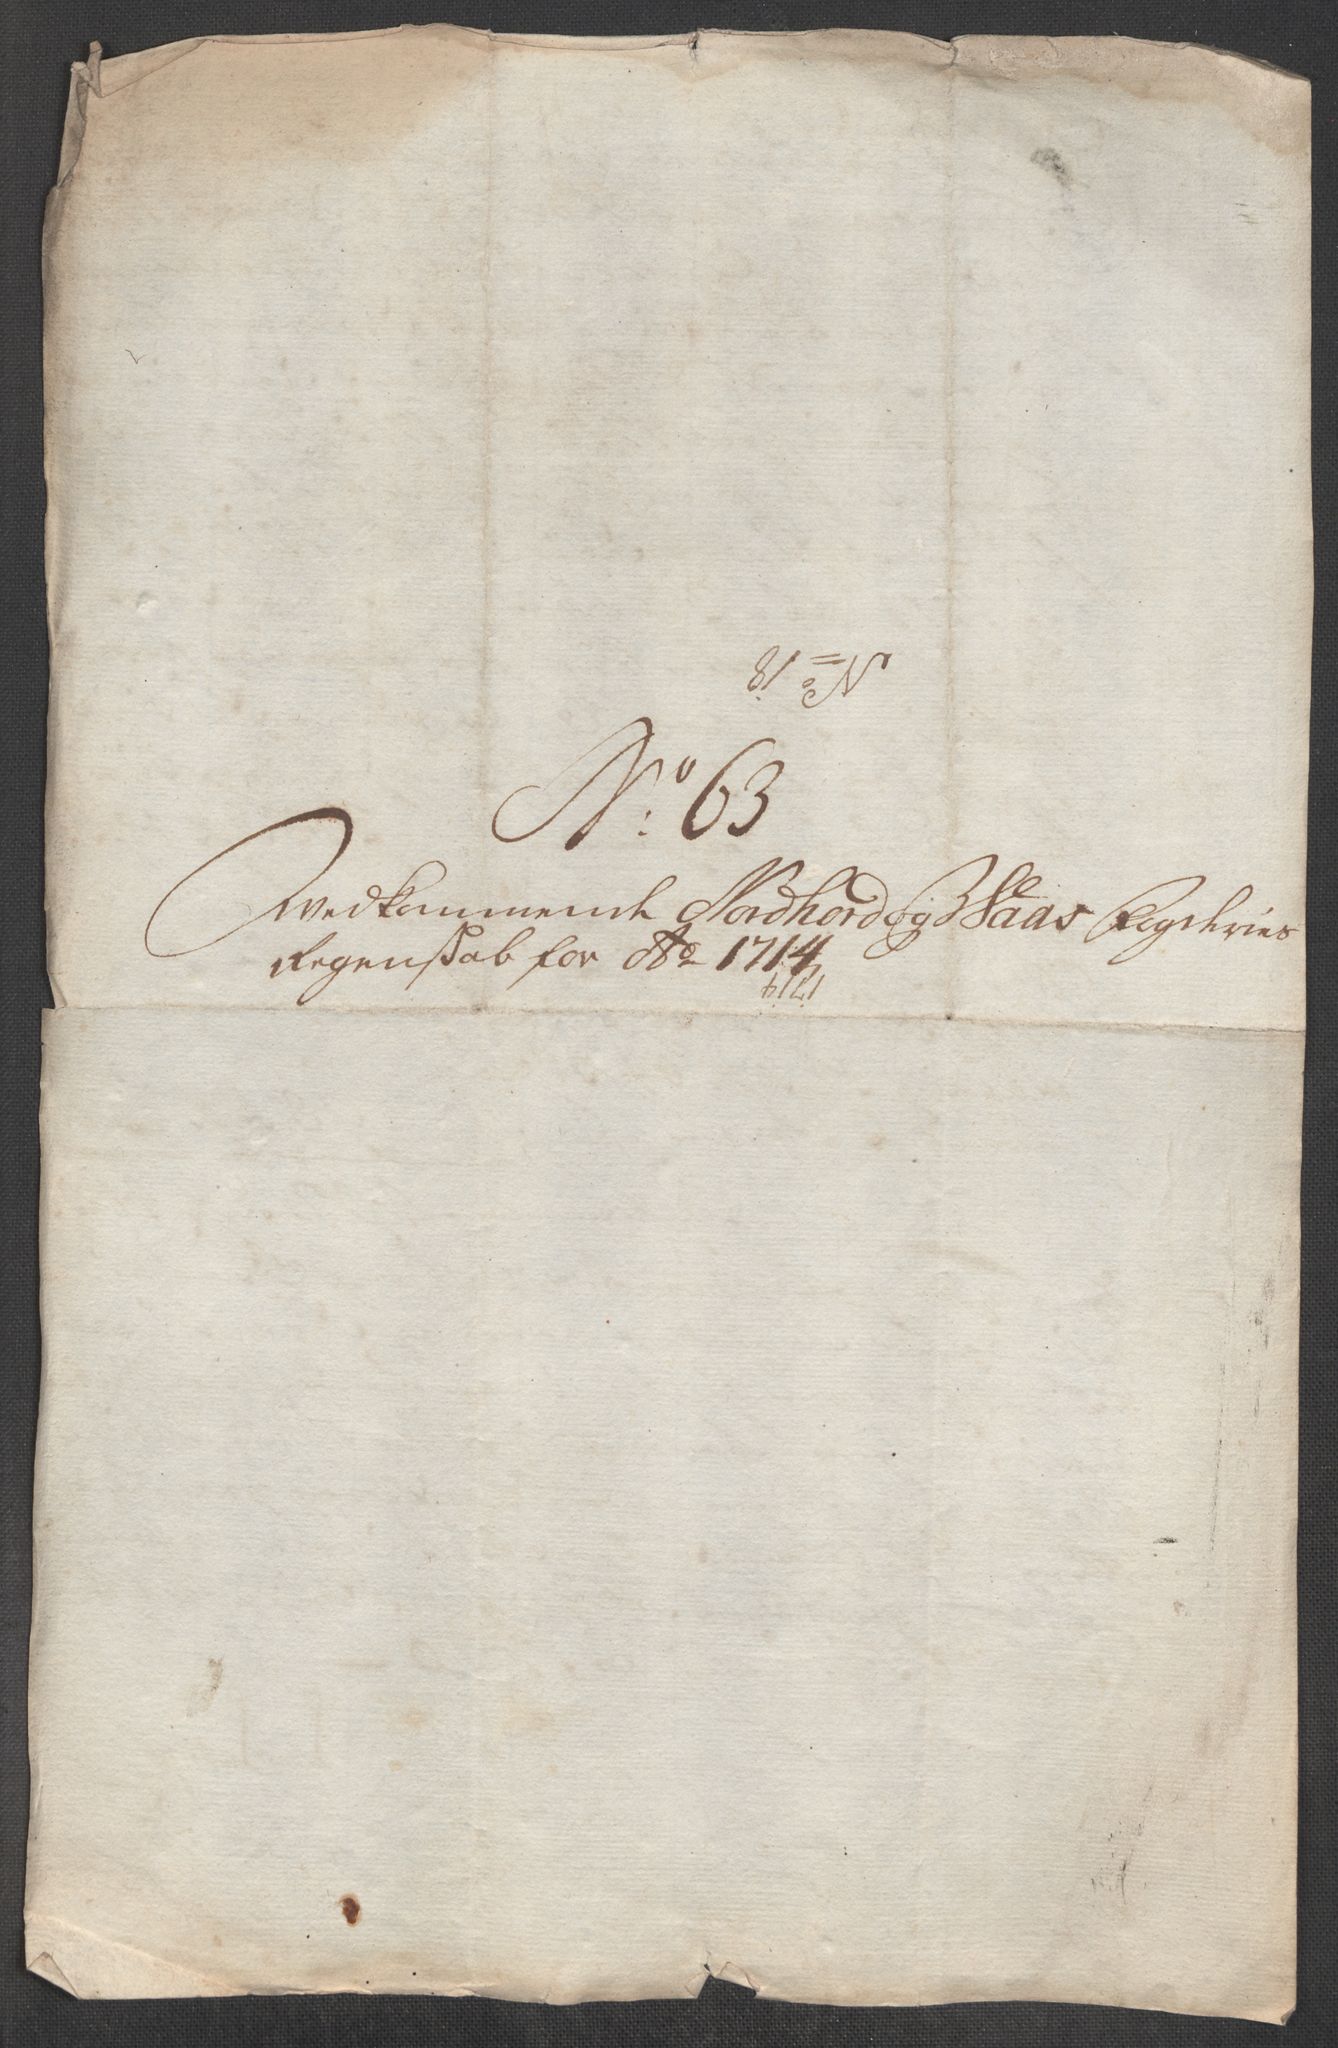 No 18
No: 63
Vedkommende Nordhord og Waas Fogderies
Regenskab for Ao 1714
1714